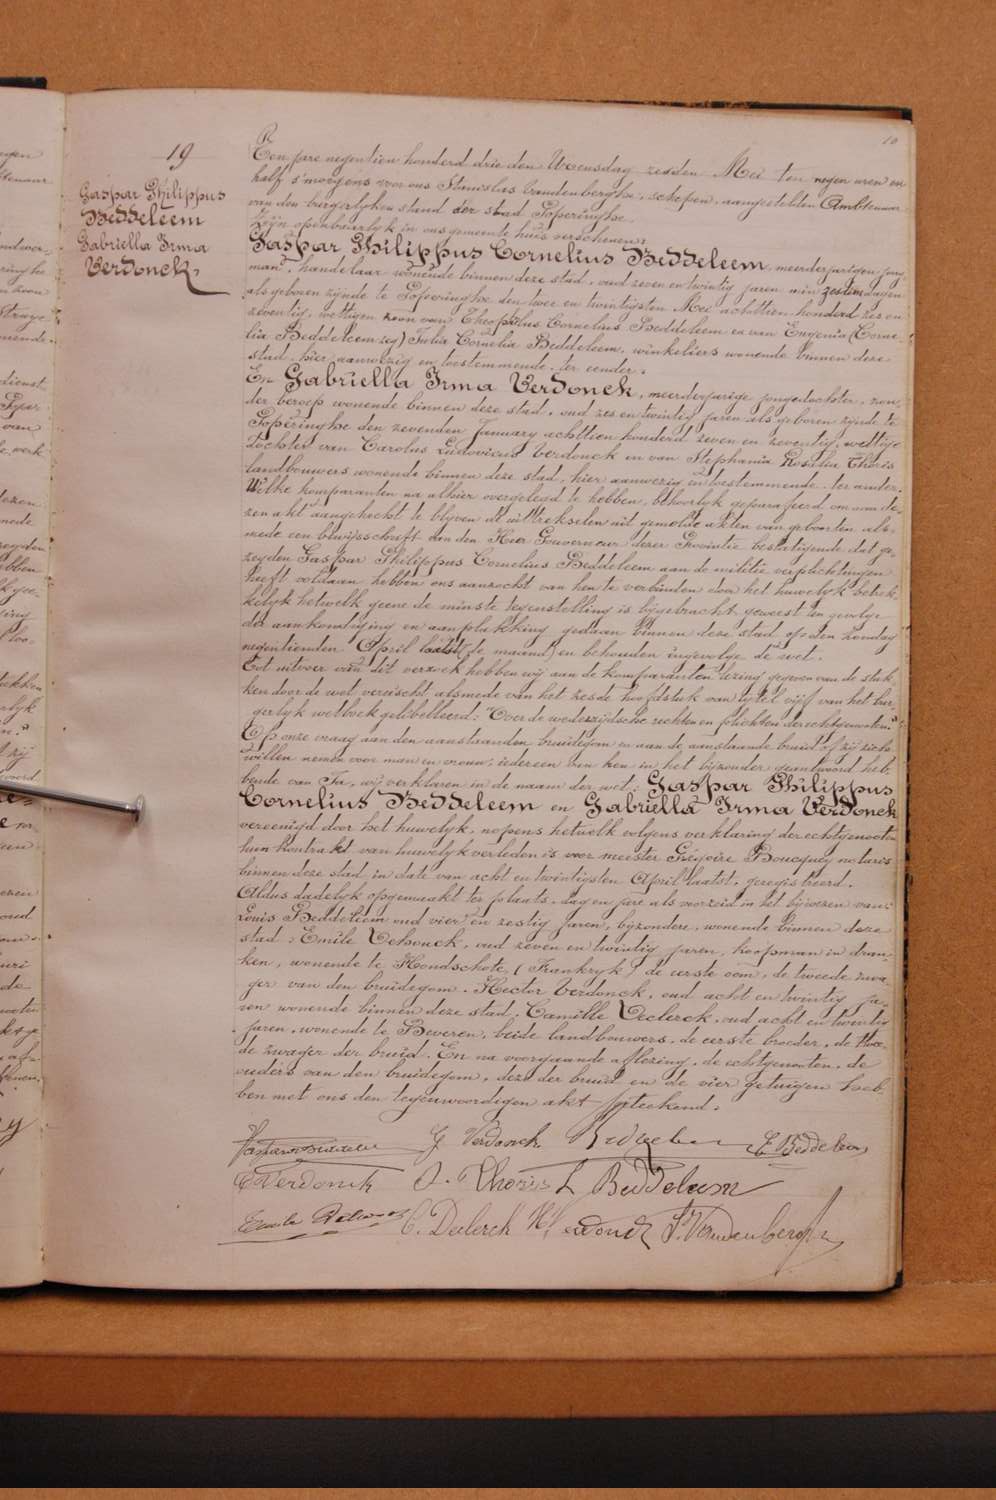 10
19
Gaspar Philippus
Beddeleem
Gabriella Irma
Verdonck,
Een jare negentien honderd drie den Woensdag zesden Mei ten negen uren en
half s'morgens voor ons Stanislas Vandenberghe, schepen, aangestelden Ambtenaar
van den burgerlyken stand der stad Poperinghe
zyn openbaarlyk in ons gemeente huis verschenen;
Gaspar Philippus Cornelius Beddeleem, meerderjarigen jong
man, handelaar wonende binnen deze stad, oud zeven en twintig jaren min zestien dagen
als geboren zynde te Poperinghe den twee en twintigsten Mei achttien honderd zes en
zeventig, wettigen zoon van Theophilus Cornelius Beddeleem en van Eugenia (Corne-
lia Beddeleem zeg) Julia Cornelia Beddeleem, winkeliers wonende binnen deze
stad, hier aanwezig en toestemmende, ter eender.
En Gabriella Irma Verdonck, meerderjarige jongedochter, zon-
der beroep wonende binnen deze stad, oud zes en twintig jaren als geboren zynde te
Poperinghe den zevenden January achttien honderd zeven en zeventig, wettige
dochter van Carolus Ludovicus Verdonck en van Stephania Rosalia Thoris
landbouwers wonende binnen deze stad, hier aanwezig en toestemmende, ter ander.
Welke komparanten na alhier overgelegd te hebben, behoorlyk geparafeerd om aan de-
zen akt aangehecht te blyven de uittrekselen uit gemelde akten van geboorten, als-
mede een bewysschrift van den Heer Gouverneur dezer Provintie bestatigende dat ge-
zeyden Gaspar Philippus Cornelius Beddeleem aan de militie verplichtingen
heeft voldaan hebben ons aanzocht van hen te verbinden door het huwelyk betrek-
kelyk hetwelk geene de minste tegenstelling is bygebracht geweest ten gevolge
der aankondiging en aanplakking gedaan binnen deze stad op den zondag
negentienden April laatst (de maand) en behouden ingevolge de wet.
Tot uitvoer van dit verzoek hebben wy aan de komparanten lezing gegeven van de stuk-
ken door de wet vereischt alsmede van het zesde hoofdstuk van tytel vyf van het bur-
gerlyk wetboek gelibelleerd: "Over de wederzydsche rechten en plichten der echtgenooten."
Op onze vraag aan den aanstaanden bruidegom en aan de aanstaande bruid of zy zich
willen nemen voor man en vrouw, iedereen van hen in het byzonder geantwoord heb-
bende van Ja, wy verklaren in de naam der wet: Gaspar Philippus
Cornelius Beddeleem en Gabriella Irma Verdonck
vereenigd door het huwelyk, nopens hetwelk volgens verklaring der echtgenooten
hun kontrakt van huwelyk verleden is voor meester Grégoire Boucquey notaris
binnen deze stad in date van acht en twintigsten April laatst, geregistreerd.
Aldus dadelyk opgemaakt ter plaats, dag en jare als voorzeid in het bywezen van:
Louis Beddeleem oud vier en zestig jaren, byzondere, wonende binnen deze
stad; Emile Dehonck, oud zeven en twintig jaren, koopman in dran-
ken, wonende te Hondschote, (Frankryk) de eerste oom, de tweede zwa-
ger van den bruidegom. Hector Verdonck, oud acht en twintig ja-
ren wonende binnen deze stad, Camille Declerck, oud acht en twintig
jaren, wonende te Beveren, beide landbouwers, de eerste broeder, de twee-
de zwager der bruid. En na voorgaande aflezing, de echtgenooten, de
ouders van den bruidegom, deze der bruid en de vier getuigen heb-
ben met ons den tegenwoordigen akt geteekend.
G Verdonck E Beddeleem
C Verdonck S. Thoris L Beddeleem
Emile C. Declerck H Verdonck S. Vandenberghe